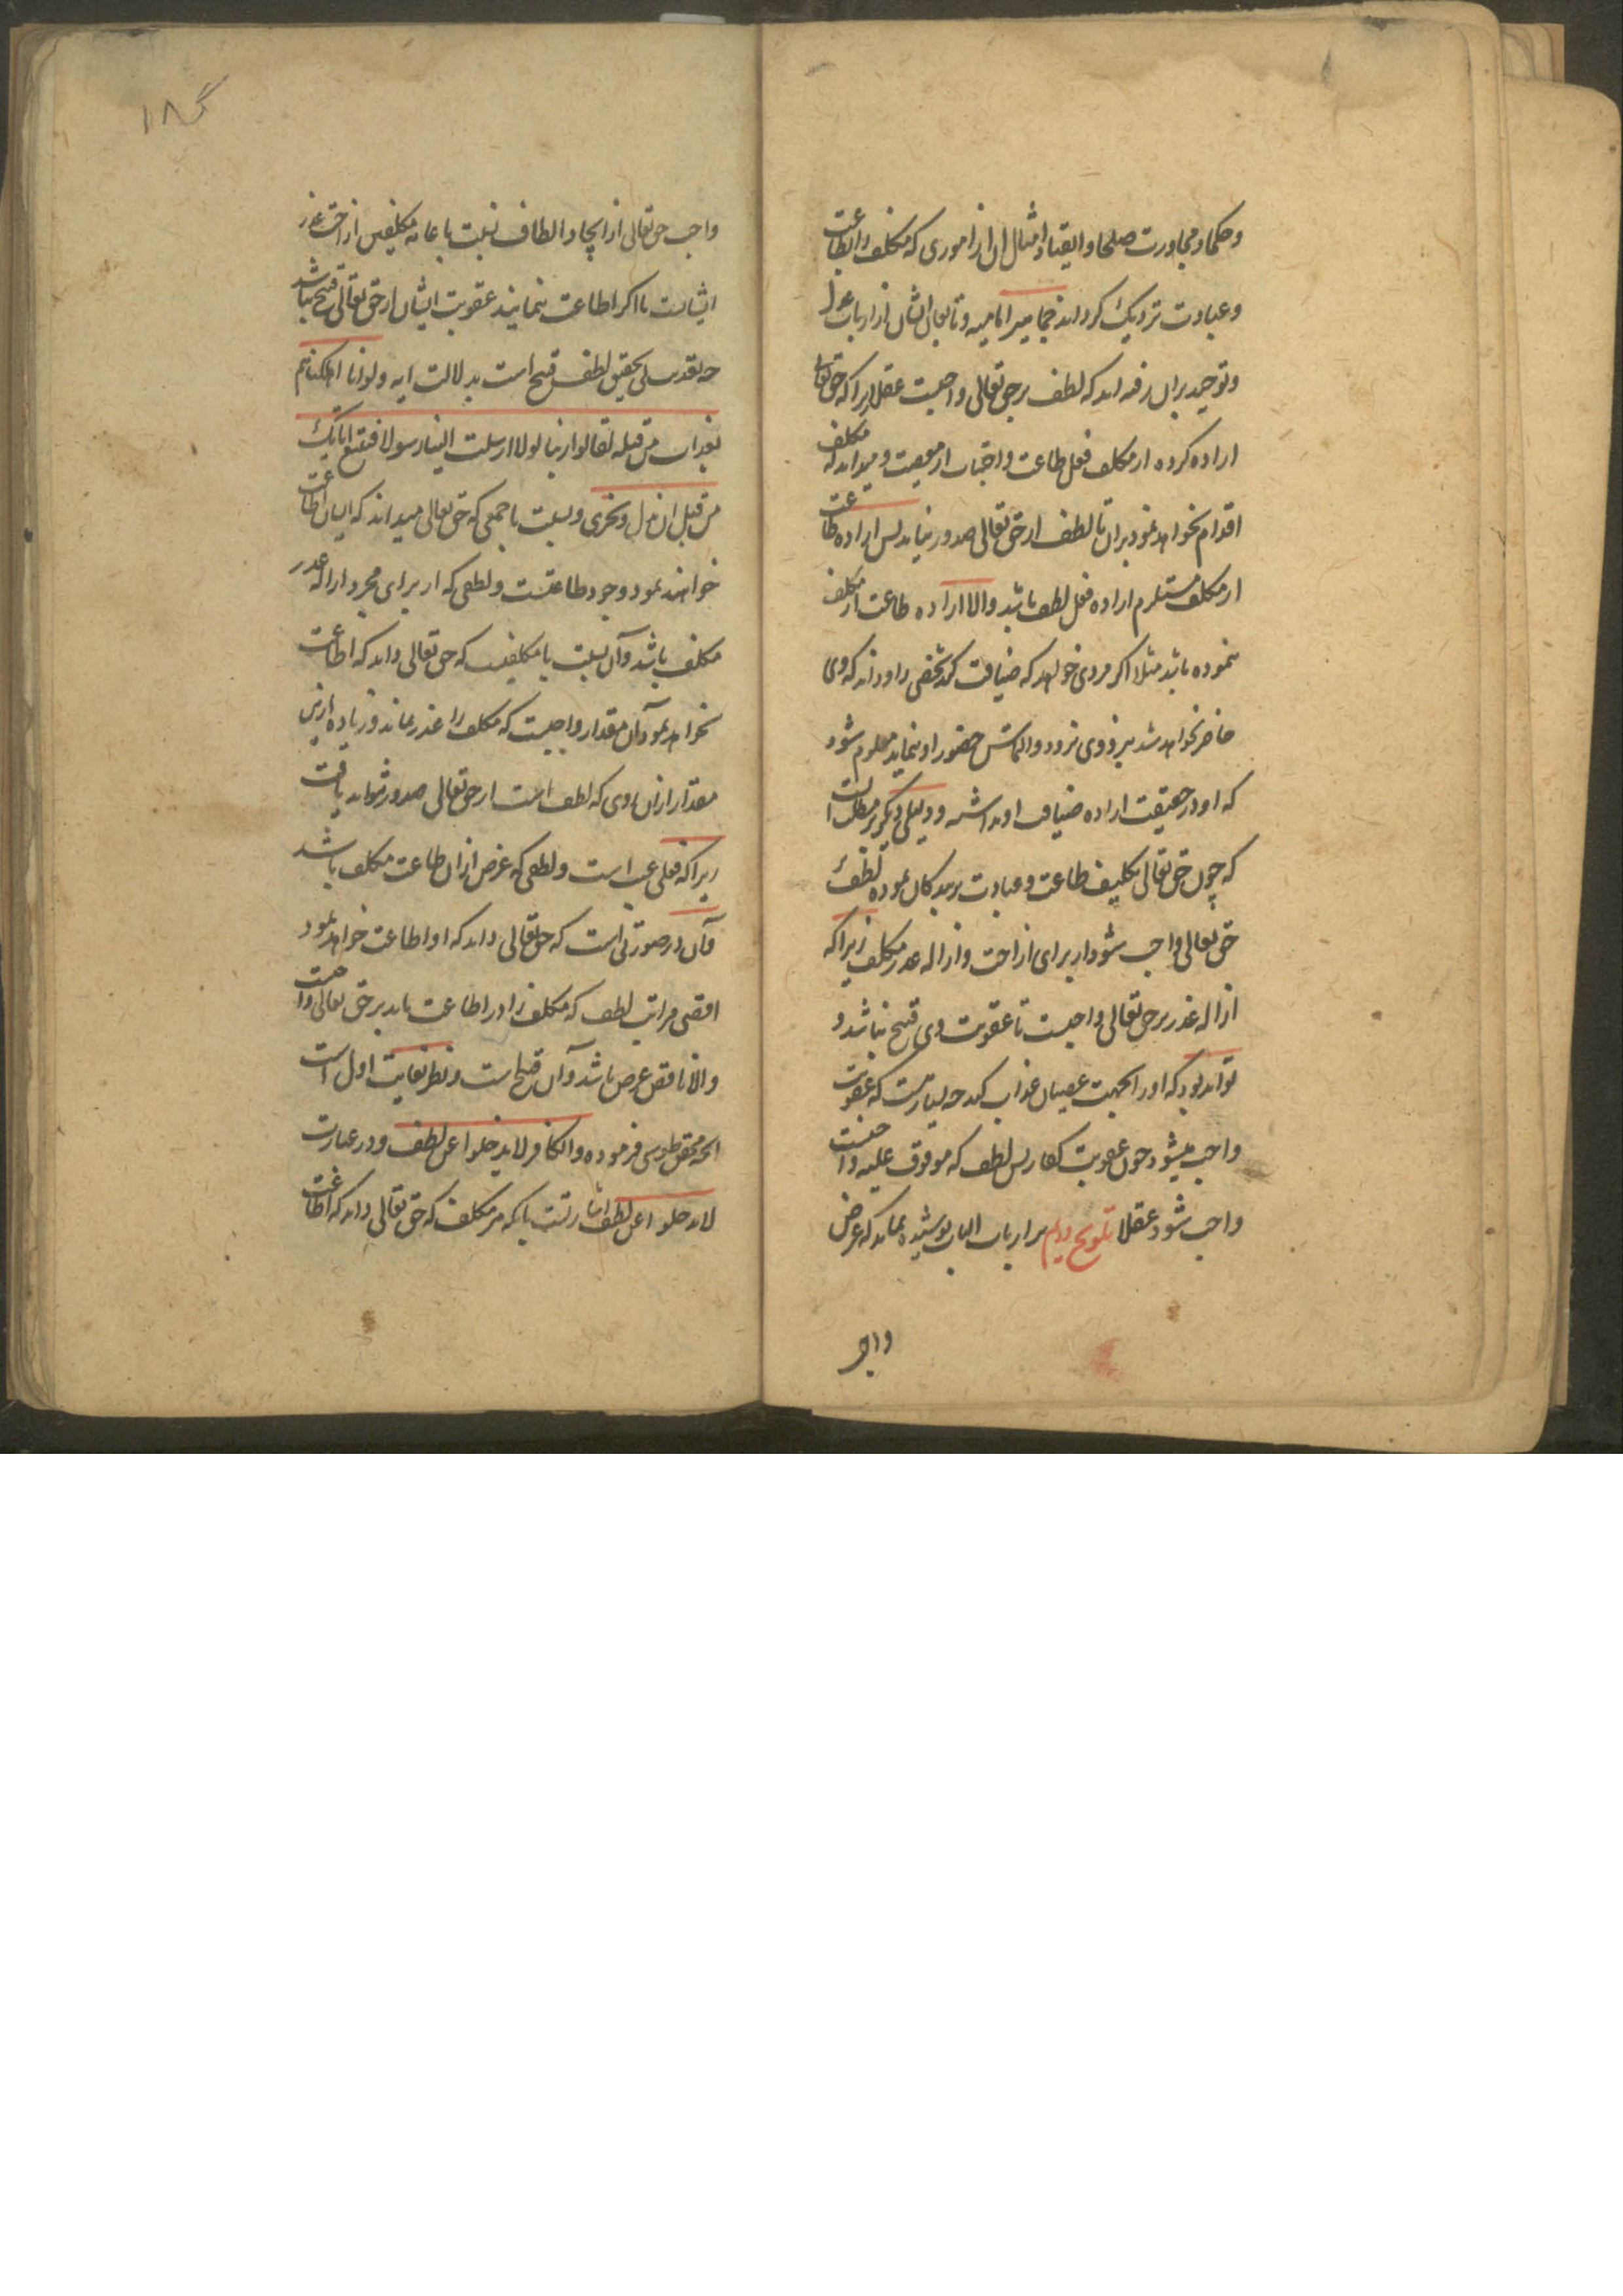 وحکما و مجاورت صلحا و اتقیا و امثال آن از اموری که مکلف را بطاعت
و عبادت نزدیک گرداند جماهیر امامیه و تابعان ایشان از ارباب عدل
و توحید بران رفته اند که لطف برحق تعالی واجبست عقلا زیرا که حق تعالی
اراده کرده از مکلف فعل طاعت و اجتناب از معصیت و میداند که مکلف
اقدام نخواهد نمود بران تا لطف از حق تعالی صدور نیابد پس اراده طاعت
از مکلف مستلزم اراده فعل لطف باشد والا اراده طاعت از مکلف
ننموده باشد مثلا اگر مردی خواهد که ضیافت کند شخصی را و داند که وی
حاضر نخواهد شد نزد وی نرود و التماس حضور او ننماید معلوم شود
که او در حقیقت اراده ضیافت او نداشته و دلیلی دیگر بر مطلب آنست
که چون حق تعالی تکلیف طاعت و عبادت بر بندگان نموده لطف
حق تعالی واجب شود از برای ازاحت و ازاله عذر مکلف زیرا که
ازاله عذر برحق تعالی واجبست تا عقوبت وی قبیح نباشد و
تواند بود که او را بجهت عصیان عذاب کند چه بسیارست که عقوبت
واجب میشود چون عقوبت کفار پس لطف که موقوف علیه واجبست
واجب شود عقلا تلویح دویم بر ارباب الباب پوشیده نماند که غرض
واجب
۱۸
واجب حق تعالی از ایجاد الطاف نسبت با عامه مکلفین ازاحت عذر
ایشانست تا اگر اطاعت ننمایند عقوبت ایشان از حق تعالی قبیح نباشد
چه تعذیب بی تحقیق لطف قبیح است بدلالت ایه ولو انا اهلکناهم
بعذاب من قبله لقالوا ربنا لولا ارسلت الینا رسولا فنتبع ایاتک
من قبل ان نذل ونخزی و نسبت با جمعی که حق تعالی میداند که ایشان اطاعت
خواهند نمود وجود طاعتست و لطفی که از برای مجرد ازاله عذر
مکلف باشد و آن نسبت با مکلفیست که حق تعالی داند که اطاعت
نخواهد نمود آن مقدار واجبست که مکلف را عذر نماند و زیاده ازین
مقدار ازان روی که لطف است از حق تعالی صدور نتواند یافت
زیرا که فعلی عبث است و لطفی که غرض ازان طاعت مکلف باشد
و آن در صورتی است که حق تعالی داند که او اطاعت خواهد نمود
اقصی مراتب لطف که مکلف را در اطاعت باید برحق تعالی واجبست
والا ناقض غرض باشد و آن قبیح است و نظر بغایت اول است
انچه محقق طوسی فرموده والکافر لا یخلو عن لطف و در عبارت
لا یخلو عن لطف اشارتست بانکه هر مکلف که حق تعالی داند که اطاعت